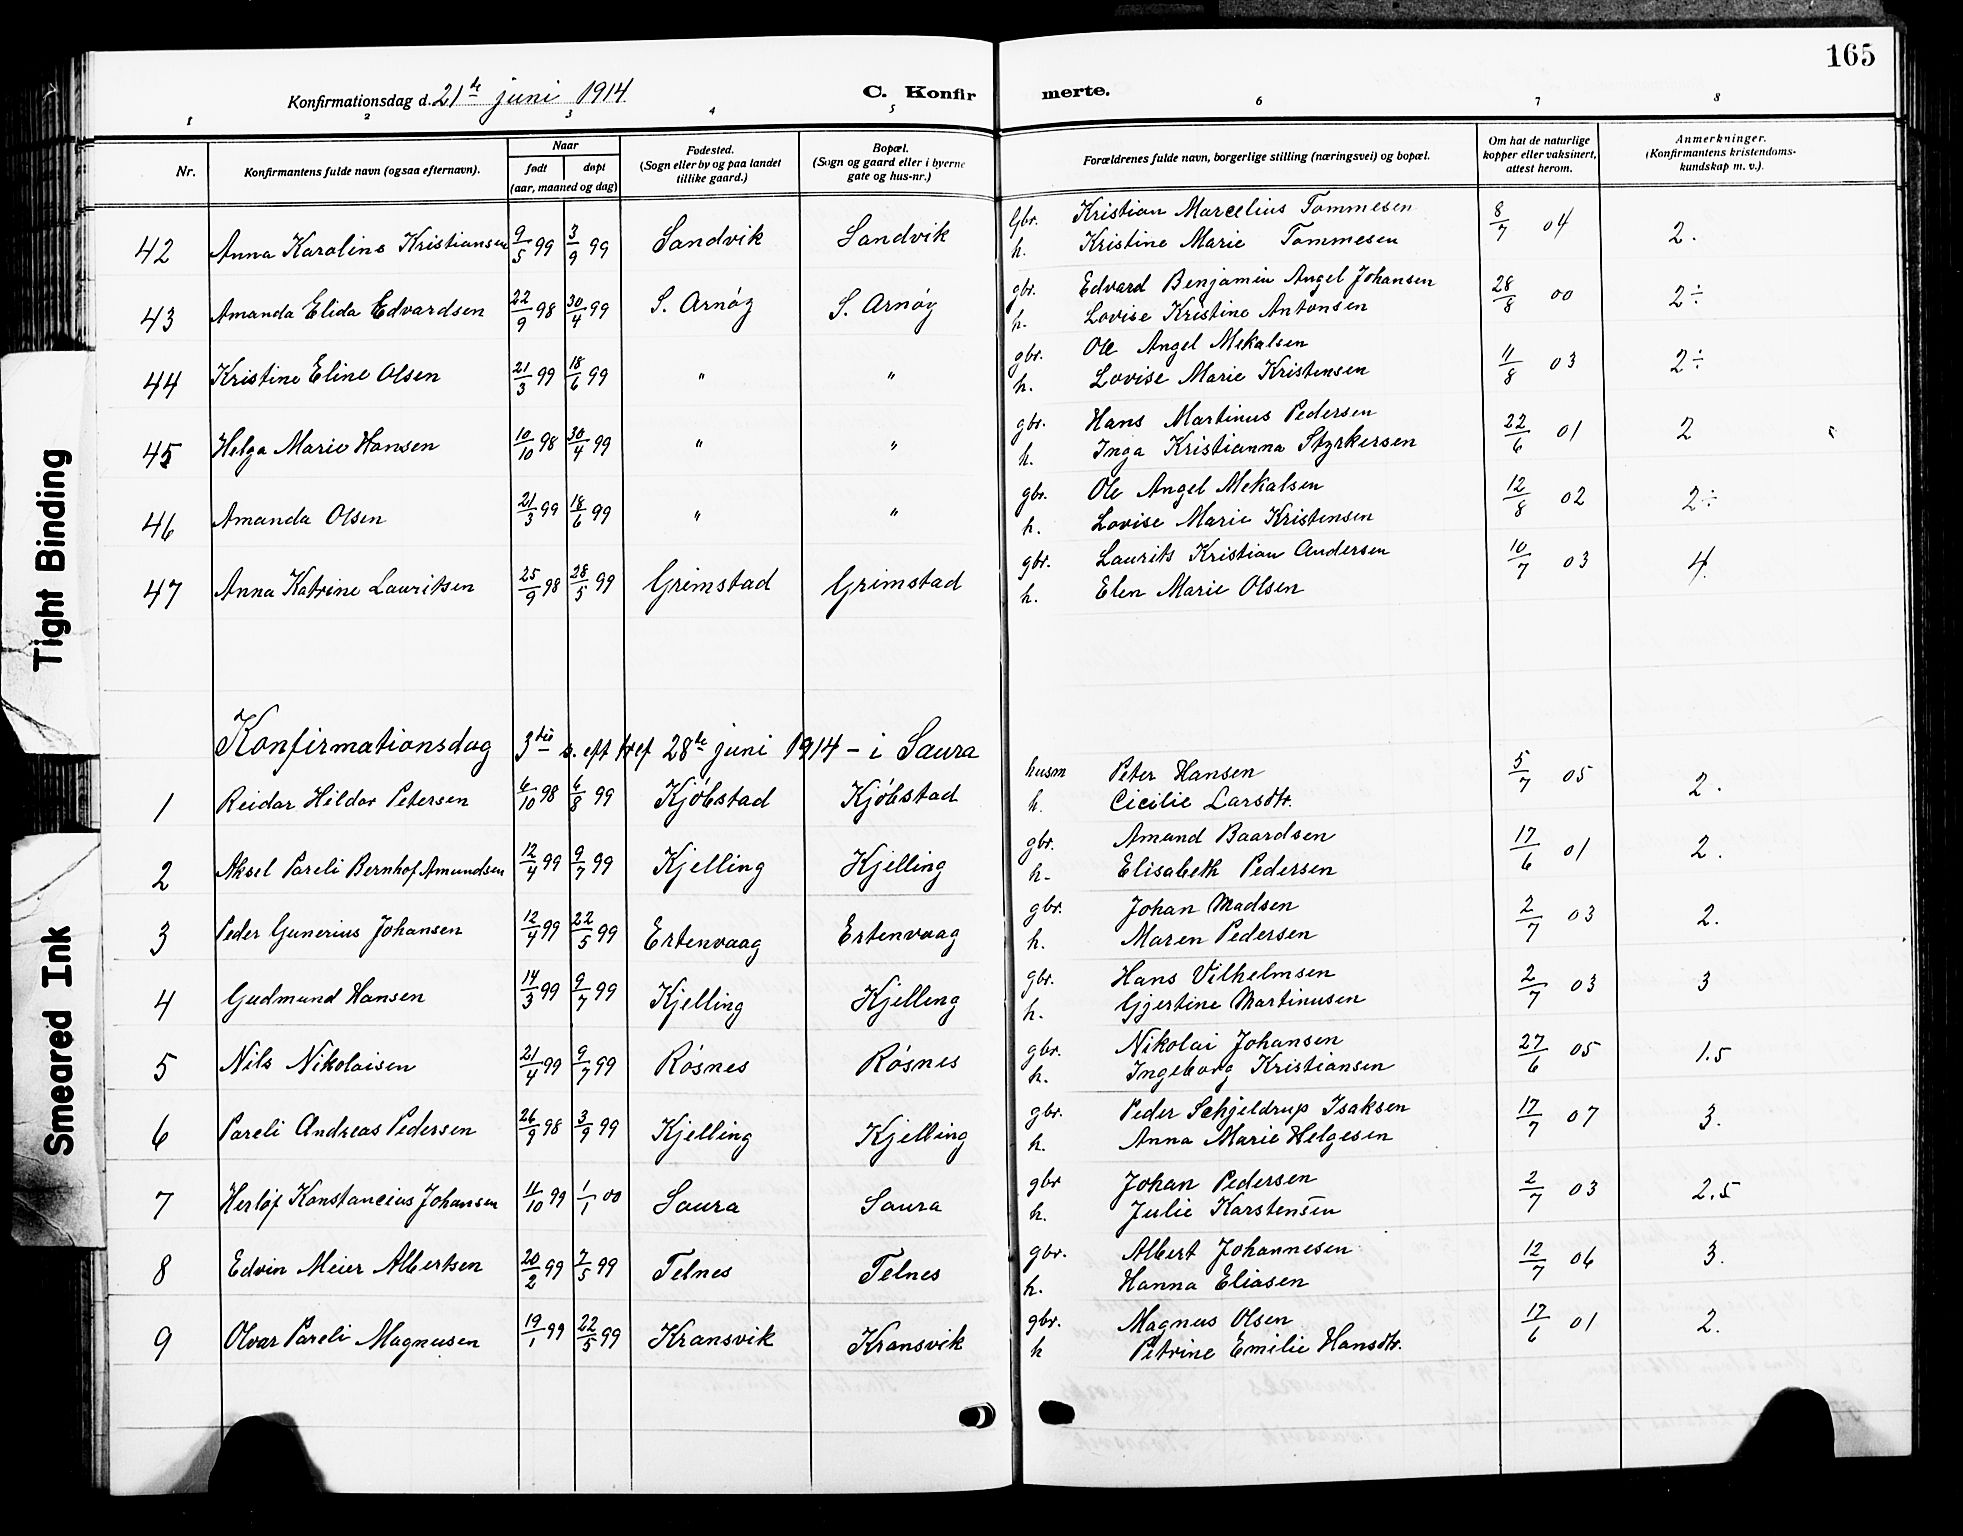 165
Konfirmationsdag d. 21de juni 1914
C. Konfirmerte.
1 2 3 4 5 6 7 8
Nr.
Konfirmantens fulde navn (ogsaa efternavn).
Naar
født døpt
(aar, maaned og dag)
Fødested.
(Sogn eller by og paa landet
tillike gaard.)
Bopæl.
(Sogn og gaard eller i byerne
gate og hus-nr.)
Forældrenes fulde navn, borgerlige stilling (næringsvei) og bopæl.
Om hat de naturlige
kopper eller vaksinert,
attest herom.
Anmerkninger.
(Konfirmantens kristendoms-
kundskap m. v.).
42 Anna Karoline Kristiansen 9/5 99 3/9 99 Sandvik Sandvik gbr. Kristian Marcelius Tommesen 8/7 04 2.
h. Kristine Marie Tommesen
43 Amanda Elida Edvardsen 22/9 98 30/4 99 S. Arnøy S. Arnøy gbr. Edvard Benjamin Angel Johansen 28/8 00 2÷
h. Lovise Kristine Antonsen
44 Kristine Eline Olsen 21/3 99 18/6 99 " " gbr. Ole Angel Mekalsen 11/8 03 2÷
h. Lovise Marie Kristensen
45 Helga Marie Hansen 10/10 98 30/4 99 " " gbr. Hans Martinus Pedersen 22/6 01 2
h. Inga Kristianna Styrkersen
46 Amanda Olsen 21/3 99 18/6 99 " " gbr. Ole Angel Mekalsen 12/8 02 2÷
h. Lovise Marie Kristensen
47 Anna Katrine Lauritsen 25/9 98 28/5 99 Grimstad Grimstad gbr. Laurits Kristian Andersen 10/7 03 4.
h. Elen Marie Olsen
Konfirmationsdag 3die s. eft tref 28de juni 1914 – i Saura
1 Reidar Hildor Petersen 6/10 98 6/8 99 Kjøbstad Kjøbstad husm Peter Hansen 5/7 05 2.
h. Cicilie Larsdtr.
2 Aksel Pareli Bernhof Amundsen 12/4 99 9/7 99 Kjelling Kjelling gbr. Amund Baardsen 17/6 01 2.
h. Elisabeth Pedersen
3 Peder Gunerius Johansen 12/4 99 22/5 99 Ertenvaag Ertenvaag gbr. Johan Madsen 2/7 03 2.
h. Maren Pedersen
4 Gudmund Hansen 14/3 99 9/7 99 Kjelling Kjelling gbr. Hans Vilhelmsen 2/7 03 3
h. Gjertine Martinusen
5 Nils Nikolaisen 21/4 99 9/7 99 Røsnes Røsnes gbr. Nikolai Johansen 27/6 05 1.5
h. Ingeborg Kristiansen
6 Pareli Andreas Pedersen 26/9 98 3/9 99 Kjelling Kjelling gbr. Peder Schjeldrup Isaksen 17/7 07 3.
h. Anna Marie Helgesen
7 Herløf Konstancius Johansen 11/10 99 1/1 00 Saura Saura gbr Johan Pedersen 2/7 03 2.5
h. Julie Karstensen
8 Edvin Meier Albertsen 20/2 99 7/5 99 Telnes Telnes gbr. Albert Johannesen 12/7 06 3.
h. Hanna Eliasen
9 Olvar Pareli Magnusen 19/1 99 22/5 99 Kransvik Kransvik gbr. Magnus Olsen 17/6 01 2.
h Petrine Emilie Hansdtr.
Tight Binding
Smeared Ink